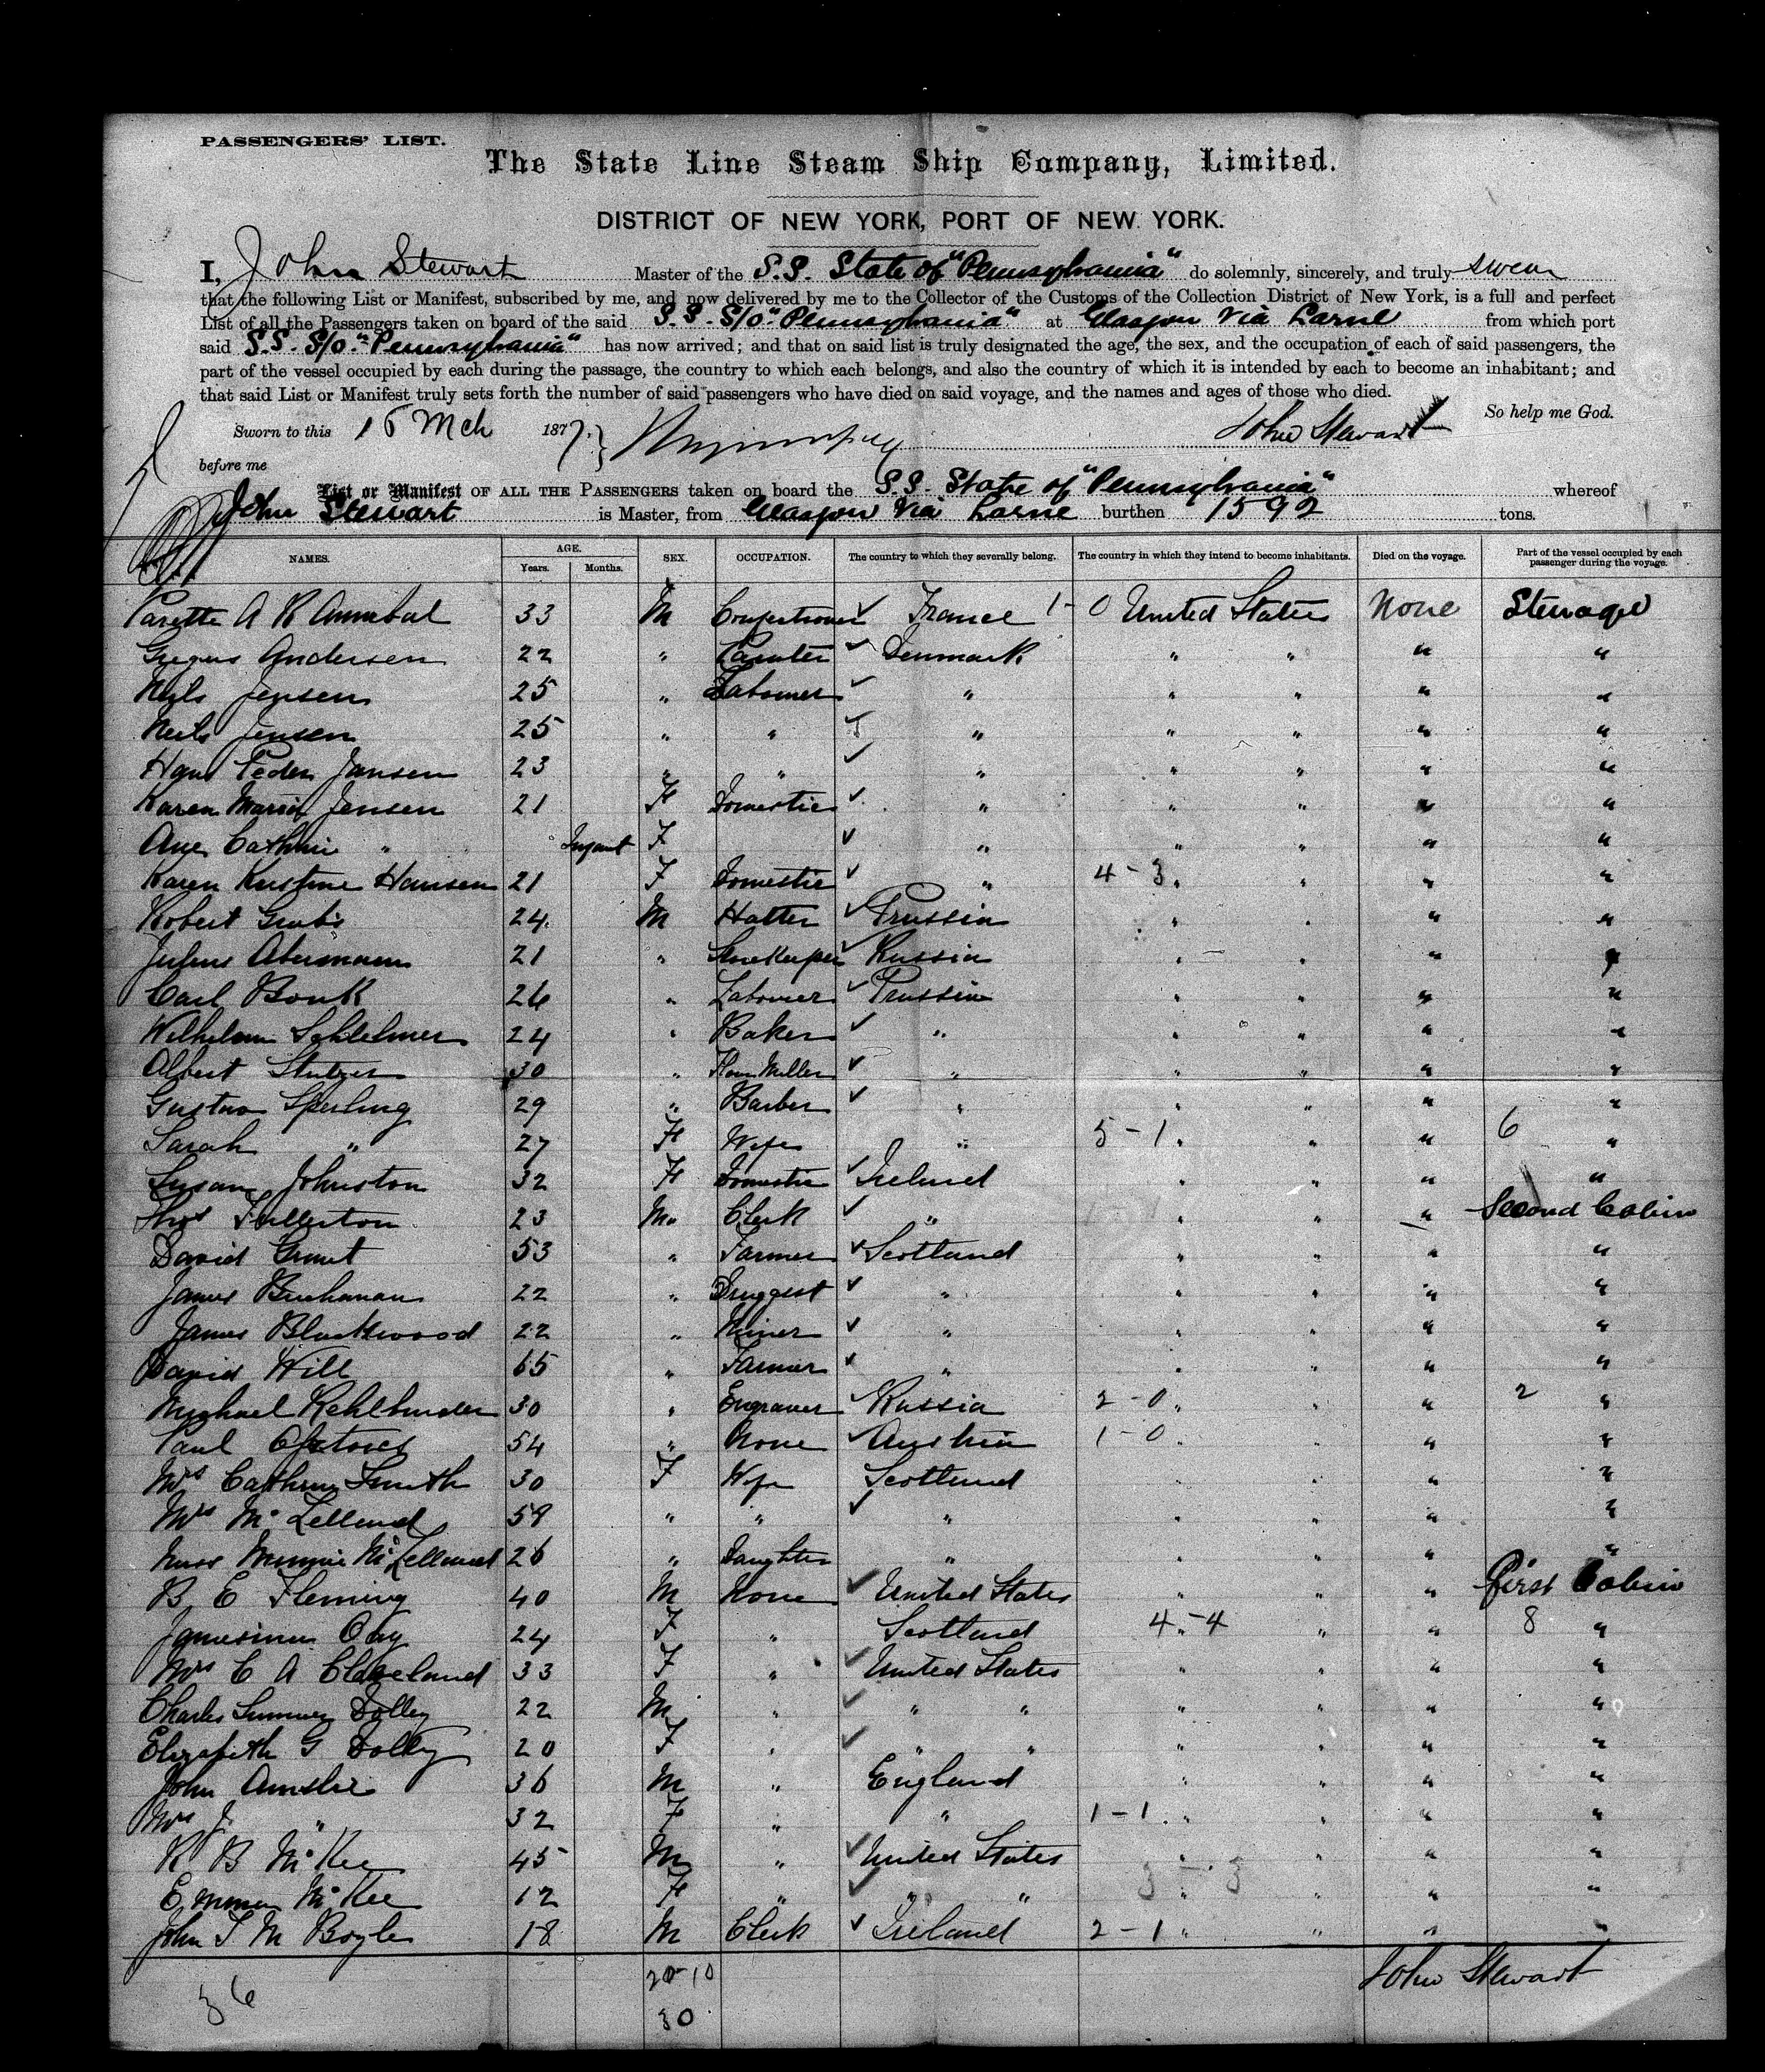 PASSENGERS' LIST.
The State Line Steam Ship Company, Limited.
DISTRICT OF NEW YORK, PORT OF NEW YORK.
I, John Stewart Master of the S.S. State of "Pennsylvania" do solemnly, sincerely, and truly swear
that the following List or Manifest, subscribed by me, and now delivered by me to the Collector of the Customs of the Collection District of New York, is a full and perfect
List of all the Passengers taken on board of the said S.S. S/o "Pennsylvania" at Glasgow via Larne from which port
said S.S. S/o "Pennsylvania" has now arrived; and that on said list is truly designated the age, the sex, and the occupation of each of said passengers, the
part of the vessel occupied by each during the passage, the country to which each belongs, and also the country of which it is intended by each to become an inhabitant; and
that said List or Manifest truly sets forth the number of said passengers who have died on said voyage, and the names and ages of those who died.
So help me God.
Sworn to this 15 Mch 1877. John Stewart
before me
List or Manifest OF ALL THE PASSENGERS taken on board the S.S. State of "Pennsylvania" whereof
John Stewart is Master, from Glasgow via Larne burthen 1592 tons.
NAMES. AGE. Years. Months. SEX. OCCUPATION. The country to which they severally belong. The country in which they intend to become inhabitants. Died on the voyage. Part of the vessel occupied by each passenger during the voyage.
A R Annibal 33 M Confectioner France 1-0 United States None Steerage
Andersen 22 " Painter Denmark " " " "
Niels Jensen 25 " Labourer " " " " "
Niels Jensen 25 " " " " " " "
Hans Peder Jansen 23 " " " " " " "
Karen Maria Jensen 21 F Domestic " " " " "
Ane Cathrine " Infant F " " " " "
Karen Kristine Hansen 21 F Domestic " 4-3 " " " "
Robert 24 M Hatter Prussia " " " "
Julius 21 " Storekeeper Russia " " " "
Carl Bonk 26 " Labourer Prussia " " " "
Wilhelm 24 " Baker " " " " "
Albert 30 " Flour Miller " " " " "
Gustav Sperling 29 " Barber " " " " "
Sarah " 27 F Wife " 5-1 " " " 6 "
Susan Johnston 32 F Domestic Ireland " " " "
Thos Fullerton 23 M Clerk " " " " Second Cabin
David Grant 53 " Farmer Scotland " " " "
James Buchanan 22 " Druggist " " " " "
James Blackwood 22 " Miner " " " " "
David Will 65 " Farmer " " " " "
Michael 30 " Engraver Russia 2-0 " " " 2 "
Paul 54 " None Austria 1-0 " " " "
Mrs Cathrine Smith 30 F Wife Scotland " " " "
Mrs McLelland 58 " " " " " " "
Miss Minnie McLelland 26 " Daughter " " " " "
B. E Fleming 40 M None United States " " " First Cabin
Jamesina Gay 24 F " Scotland 4-4 " " " 8 "
Mrs C A Cleveland 33 F " United States " " " "
Charles Sumner Dolley 22 M " " " " " " "
Elizabeth G Dolley 20 F " " " " " " "
John Amslie 36 M " England " " " "
Mrs J. " 32 F " " 1-1 " " " "
R B McKee 45 M " United States " " " "
Emma McKee 12 F " " " 3-3 " " " "
John S M Boyle 18 M Clerk Ireland 2-1 " " " "
20-10 John Stewart
36 30